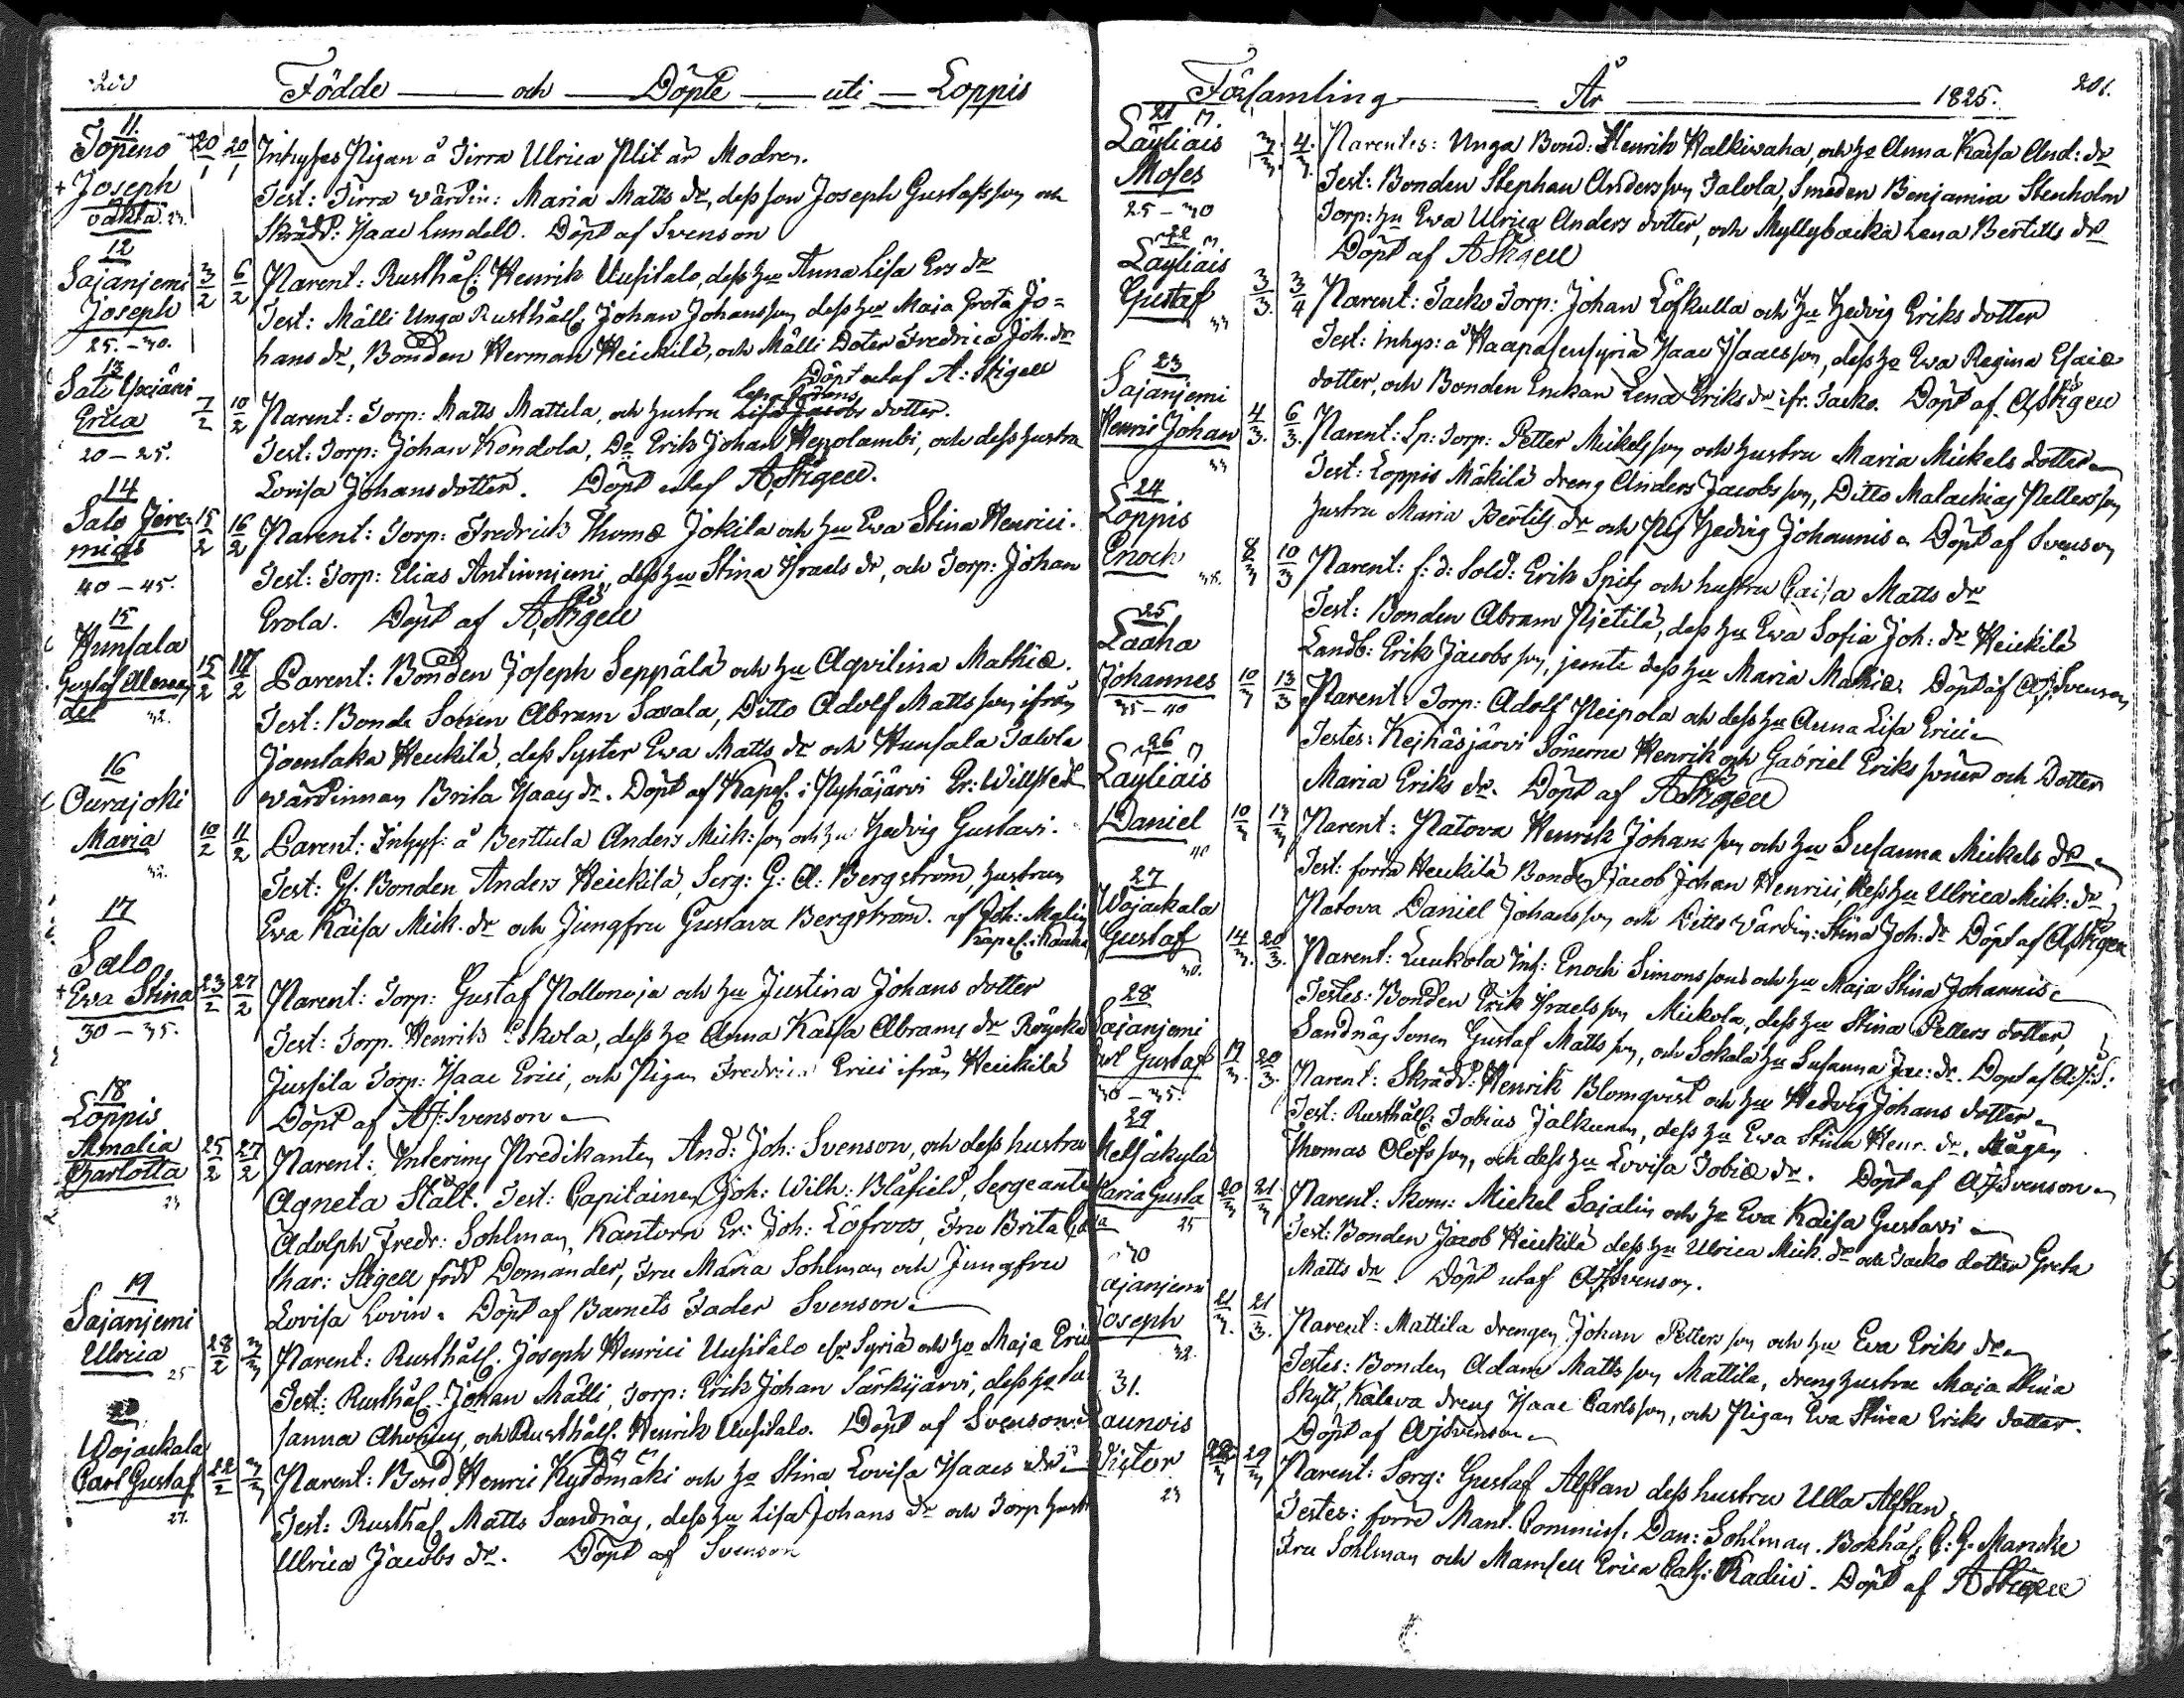 200
Födde — och — Döpte — uti — Loppis
11.
Topeno 20/1 20/1 Inhyses Pigan å Tirra Ulrica Plit är Modren.
+ Joseph Test: Tirra värdin: Maria Matts dr, dess son Joseph Gustafsson och
oäkta. 23. Skrädd: Isaac Lundell. Döpt af Svenson
12
Sajanjemi 3/2 6/2 Parent: Rusthål: Henrik Uusitalo, dess hu Anna Lisa Ers dr
Joseph Test: Mälli Unga Rusthåll: Johan Johansson dess hu Maja Greta Jo=
25.-30. hans dr, Bonden Herman Heickilä, och Mälli Doter Fredrica Joh. dr
Döpt utaf A: Stigell
13
Salo
Erica 7/2 10/2 Parent: Torp: Matts Mattila, och hustru Lisa Jacobs dotter.
20-25. Test: Torp: Johan Kondola, Do Erik Johan och dess hustru
Lovisa Johansdotter. Döpt utaf AStigell.
14
Salo Jere- 15/2 16/2 Parent: Torp: Fredrick Thomæ Jokila och hu Ewa Stina Henrici.
mias Test: Torp: Elias Antinnjemi, dess hu Stina Israels dr, och Torp: Johan
40-45. Erola. Döpt af AStigell
15
Hunsala
Gustaf Alexan 15/2 17/2 Parent: Bonden Joseph Seppälä och hu Aqvilina Mathiæ.
der 32. Test: Bonde Sonen Abram Savala, Ditto Adolf Mattsson ifrån
Joenlaka Heickilä, dess Syster Ewa Matts dr och Hunsala Talola
värdinnan Brita Isacs dr. Döpt af Kapel. i Pyhäjärvi Er: Willsted
16
Ourajoki
Maria 10/2 11/2 Parent: Inhys: å Berttula Anders Mick: son och hu Hedvig Gustavi.
32. Test: Gl. Bonden Anders Heickilä, Serg: G: A: Bergström, hustrun
Ewa Kaisa Mick. dr och Jungfru Gustava Bergström. af Joh: Malin
Kapel. i
17
Salo
+ Ewa Stina 23/2 27/2 Parent: Torp: Gustaf Pollonoja och hu Justina Johans dotter
30-35. Test: Torp. Henrik Eskola, dess hu Anna Kaisa Abrams dr
Jussila Torp: Isaac Erici, och Pigan Fredrica Erici ifrån Heickilä
Döpt af AJ: Svenson
18
Loppis
Amalia 25/2 27/2 Parent: Interims Predikanten And: Joh: Svenson, och dess hustru
Charlotta Agneta Stålt. Test: Capitainen Joh: Wilh: Blåfield, Sergeanten
23 Adolph Fredr: Sohlman, Kantorn Er: Joh: Löfroos, Fru Brita Ca
thar: Stigell född Domander, Fru Maria Sohlman och Jungfru
Lovisa Lovin. Döpt af Barnets Fader Svenson
19
Sajanjemi
Ulrica 28/2 3/3 Parent: Rusthåll: Joseph Henrici Uusitalo elr Syriä och hu Maja Erici
25 Test: Rusthål: Johan Mälli, Torp: Erik Johan Särkijärvi, dess hu Su
sanna och Rusthåll: Henrik Uusitalo. Döpt af Svenson
20
Wojackala
Carl Gustaf 22/2 3/3 Parent: Bond: Henric Kydömäki och hu Stina Lovisa Isaacs dr
27. Test: Rusthål Matts Sandnäs, dess hu Lisa Johans dr och Torp: hustr
Ulrica Jacobs dr. Döpt af Svenson
Församling — År — 1825. 201.
21
Läyliäis 3/3 4/3 Parentes: Unga Bond: Henrik Halkivaha, och hu Anna Kaisa And: dr
Moses Test: Bonden Stephan Andersson Talola, Smeden Benjamin Stenholm
25-30 Torp: hu Ewa Ulrica Anders dotter, och Myllybacka Lena Bertills dr
Döpt af AStigell
22
Läyliäis
Gustaf 3/3. 3/4 Parent: Tacko Torp: Johan Löfkulla och hu Hedvig Eriks dotter
33 Test: Inhys: å Haapasensyriä Isaac Isaacsson, dess hu Ewa Regina Esaiæ
dotter, och Bonden Enckan Lena Eriks dr ifr. Tacko. Döpt af AStigell
23
Sajanjemi
Henric Johan 4/3. 6/3. Parent: Sp: Torp: Petter Mickelsson och hustru Maria Mickels dotter
33 Test: Loppis Mäkilä dreng Anders Jacobsson, Ditto Malachias Pettersson
hustru Maria Bertils dr och Pig Hedvig Johannis. Döpt af Svenson
24
Loppis
Enoch 8/3 10/3 Parent: f: d: Sold: Erik Spits och hustru Caisa Matts dr
Test: Bonden Abram Pietilä, dess hu Ewa Sofia Joh: dr Heickilä
Landb: Erik Jacobsson, jemte dess hu Maria Mathiæ. Döpt af AJ: Svenson
25
Laaha
Johannes 10/3 13/3 Parent: Torp: Adolf Peipola och dess hu Anna Lisa Erici
35-40 Testes: Kejhäsjärvi Sönerne Henrik och Gabriel Eriks söner och Dotter
Maria Eriks dr. Döpt af AStigell
26
Läyliäis
Daniel 10/3 13/3 Parent: Patova Henrik Johansson och hu Susanna Mickels dr
40 Test: forra Heickilä Bonden Jacob Johan Henrici, dess hu Ulrica Mick: dr
Patova Daniel Johansson och Ditto Värdin: Stina Joh: dr Döpt af AStigell
27
Wojackala
Gustaf 14/3. 20/3. Parent: Luukola Inh: Enoch Simonsson och hu Maja Stina Johannis
30. Testes: Bonden Erik Israelsson Mickola, dess hu Stina Petters dotter,
Sandnäs Sonen Gustaf Mattsson, och Sokala hu Susanna Jac: dr. Döpt af A: J: S:
28
Sajanjemi
Carl Gustaf 19/3. 20/3. Parent: Skrädd: Henrik Blomqvist och hu Hedvig Johans dotter
30-35. Test: Rusthåll: Tobias Jalkunen, dess hu Ewa Stina Henr. dr, Mågen
Thomas Olofsson, och dess hu Lovisa Tobiæ dr. Döpt af AJSvenson
29
Metsäkylä
Maria Gusta 20/3 21/3 Parent: Skom: Mickel Sajalin och hu Ewa Kaisa Gustavi
va 25 Test: Bonden Jacob Heickilä dess hu Ulrica Mick. dr och Tacko dotter Greta
Matts dr. Döpt utaf AJSvenson.
30
ajanjemi
Joseph 21/3. 21/3. Parent: Mattila drengen Johan Pettersson och hu Ewa Eriks dr
32. Testes: Bonden Adam Mattsson Mattila, dreng hustru Maja Stina
Skytt, Kaleva dreng Isaac Carlsson, och Pigan Ewa Stina Eriks dotter.
Döpt af AJSvenson
31.
Launois
Victor 22/3 29/3 Parent: Serg: Gustaf Alftan dess hustru Ulla Alftan,
23 Testes: forre Mant. Commiss. Dan: Sohlman. Bokhål: C: G. Mancke
Fru Sohlman och Mamsell Erica Cath: Kadin. Döpt af AStigell